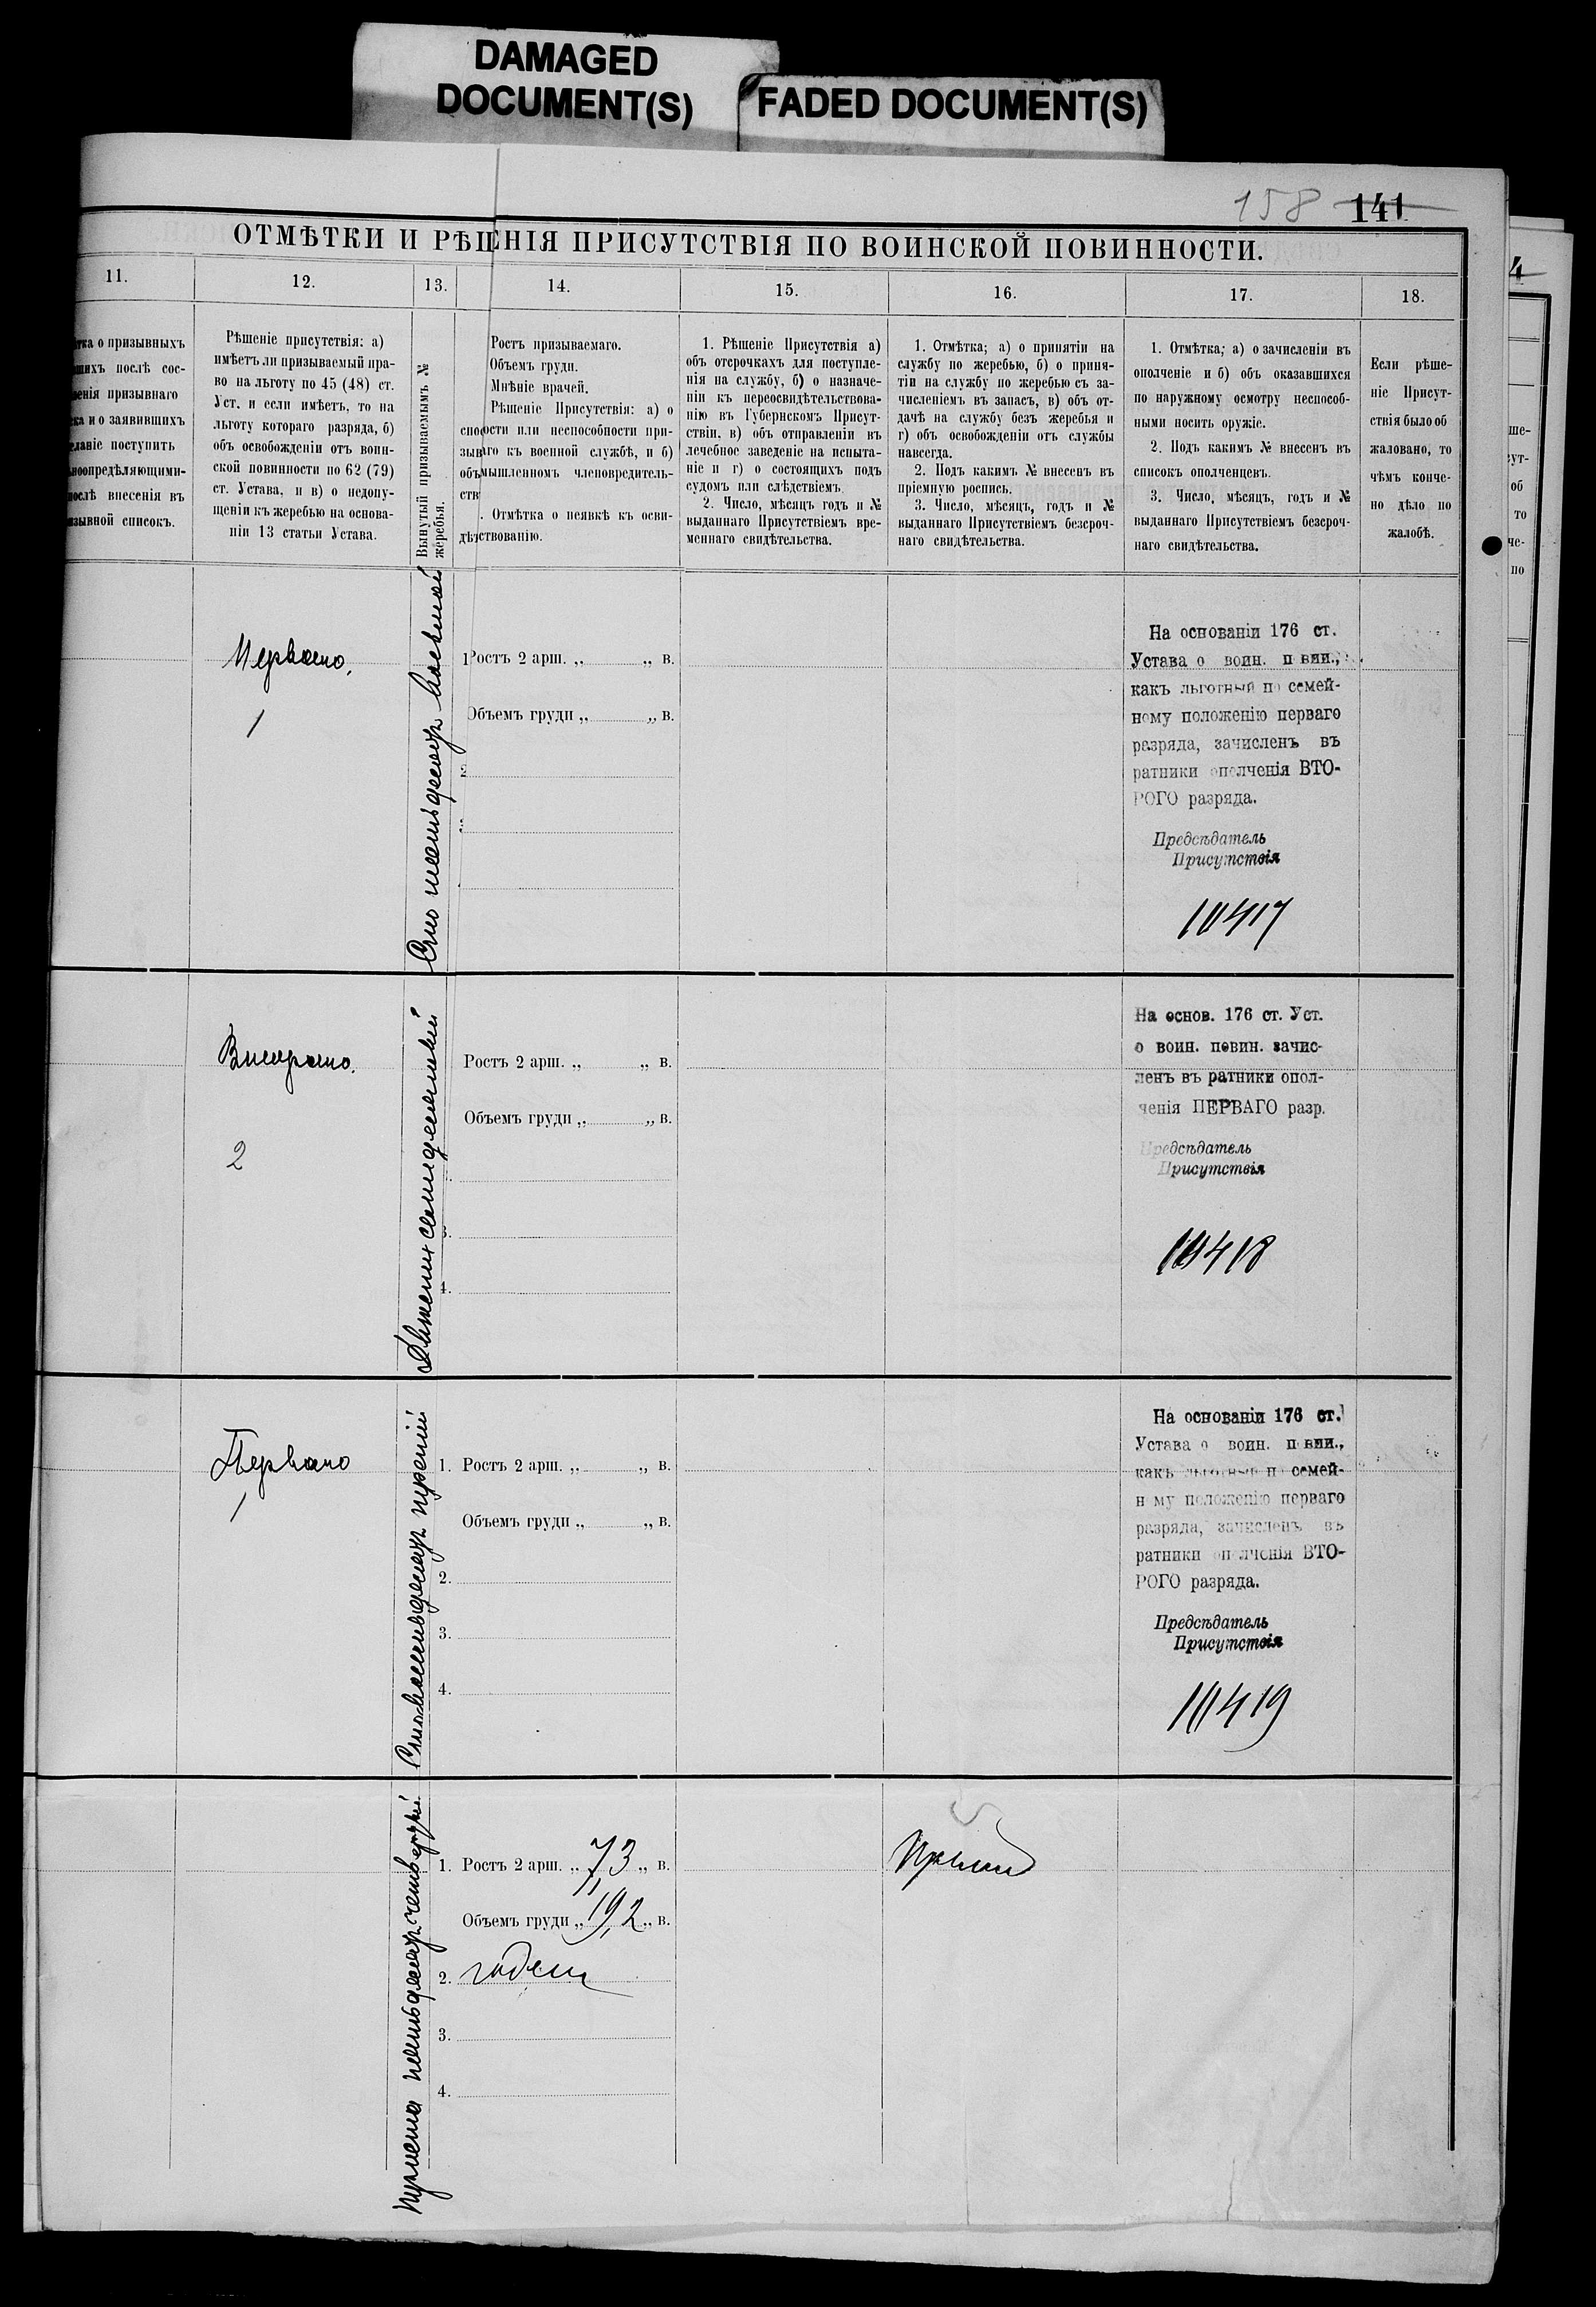 DAMAGED
DOCUMENT(S)
FADED DOCUMENT(S)
158 141
ОТМѢТКИ И РѢШЕНІЯ ПРИСУТСТВІЯ ПО ВОИНСКОЙ ПОВИННОСТИ.
11.
12.
13.
14.
15.
16.
17.
18.
о призывныхъ
послѣ сос-
призывнаго
и о заявившихъ
поступить
послѣ внесенія въ
списокъ.
Рѣшеніе присутствія: а)
имѣетъ ли призываемый пра-
во на льготу по 45 (48) ст.
Уст. и если имѣетъ, то на
льготу котораго разряда, б)
объ освобожденіи отъ воин-
ской повинности по 62 (79)
ст. Устава, и в) о недопу-
щеніи къ жеребью на основа-
ніи 13 статьи Устава.
Вынутый призываемымъ №
жеребья.
Ростъ призываемаго.
Объемъ груди.
Мнѣніе врачей.
Рѣшеніе Присутствія: а) о
или неспособности при-
къ военной службѣ, и б)
членовредитель-
Отмѣтка о неявкѣ къ осви-
1. Рѣшеніе Присутствія а)
объ отсрочкахъ для поступле-
нія на службу, б) о назначе-
ніи къ переосвидѣтельствова-
нію въ Губернскомъ Присут-
ствіи, в) объ отправленіи въ
лечебное заведеніе на испыта-
ніе и г) о состоящихъ подъ
судомъ или слѣдствіемъ.
2. Число, мѣсяцъ годъ и №
выданнаго Присутствіемъ вре-
меннаго свидѣтельства.
1. Отмѣтка; а) о принятіи на
службу по жеребью, б) о приня-
тіи на службу по жеребью съ за-
численіемъ въ запасъ, в) объ от-
дачѣ на службу безъ жеребья и
г) объ освобожденіи отъ службы
навсегда.
2. Подъ какимъ № внесенъ въ
пріемную роспись.
3. Число, мѣсяцъ, годъ и №
выданнаго Присутствіемъ безсроч-
наго свидѣтельства.
1. Отмѣтка; а) о зачисленіи въ
ополченіе и б) объ оказавшихся
по наружному осмотру неспособ-
ными носить оружіе.
2. Подъ какимъ № внесенъ въ
списокъ ополченцевъ.
3. Число, мѣсяцъ, годъ и №
выданнаго Присутствіемъ безсроч-
наго свидѣтельства.
Если рѣше-
ніе Присут-
ствія было об
жаловано, то
чѣмъ конче-
но дѣло по
жалобѣ.
Первано.
1
Сто шестьдесятъ восьмой
Ростъ 2 арш. „ „ в.
Объемъ груди „ „ в.
На основаніи 176 ст.
Устава о воин. повин.,
какъ льготный по семей-
ному положенію перваго
разряда, зачисленъ въ
ратники ополченія ВТО-
РОГО разряда.
Предсѣдатель
Присутствія
10417
Вторано.
2
Ростъ 2 арш. „ „ в.
Объемъ груди „ „ в.
3.
4.
На основ. 176 ст. Уст.
о воин. повин. зачис-
ленъ въ ратники опол-
ченія ПЕРВАГО разр.
Предсѣдатель
Присутствія
10418
Первано
1
1. Ростъ 2 арш. „ „ в.
Объемъ груди „ „ в.
2.
3.
4.
На основаніи 176 ст.
Устава о воин. повин.,
какъ льготный по семей-
ному положенію перваго
разряда, зачисленъ въ
ратники ополченія ВТО-
РОГО разряда.
Предсѣдатель
Присутствія
10419
1. Ростъ 2 арш. „ 7,3 „ в.
Объемъ груди „ 19,2 „ в.
2. годенъ
3.
4.
Принятъ